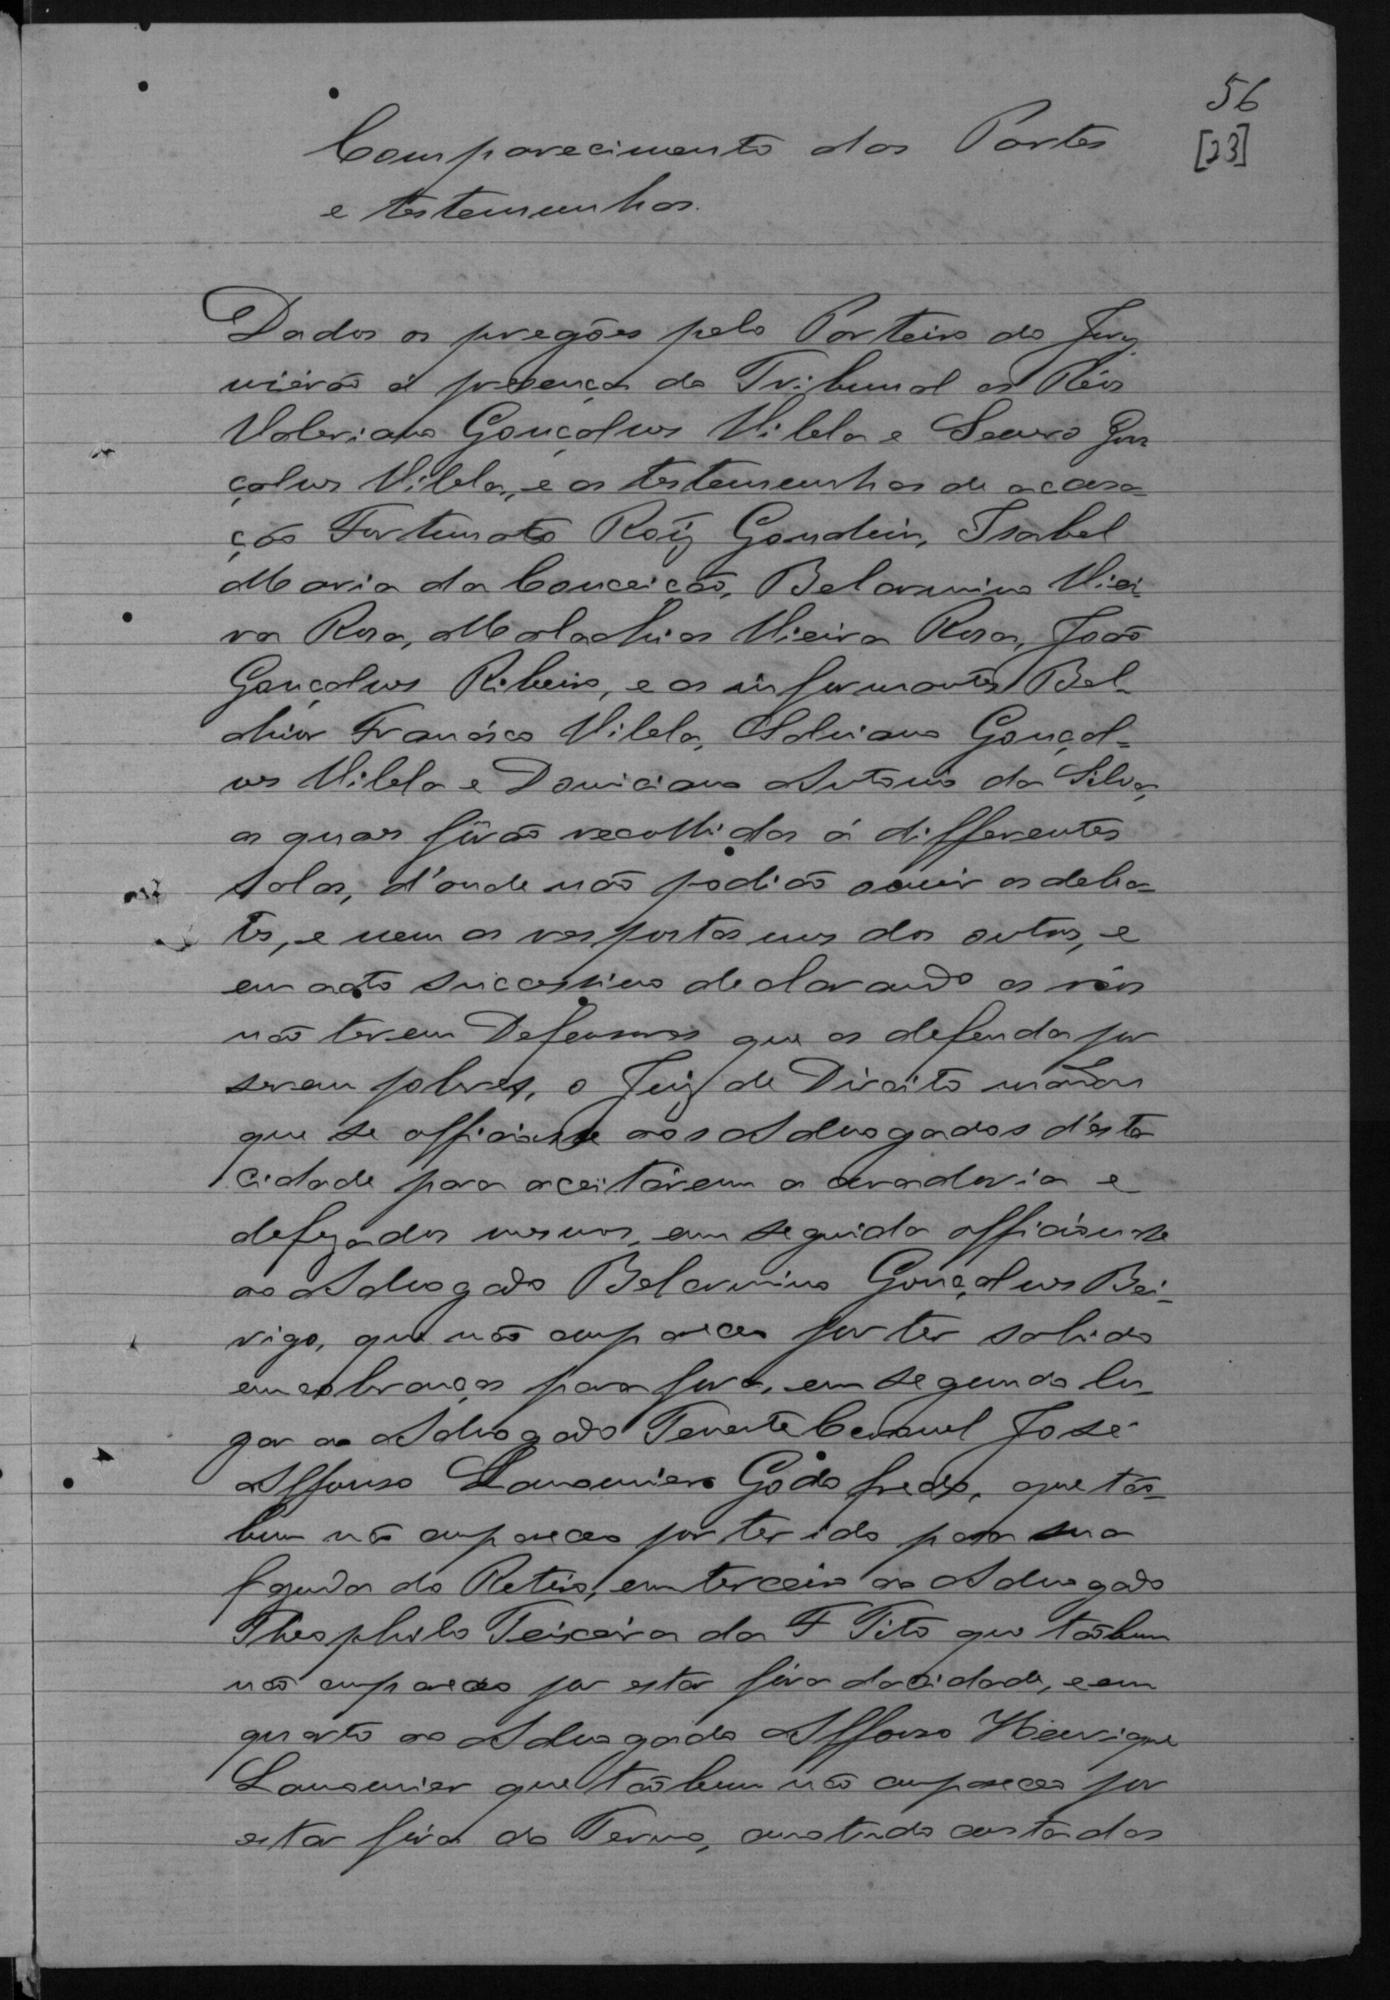 56
[23]
Comparecimento das Partes
e testemunhas.
Dados os pregões pelo Porteiro do Jury
vierão á presença do Tribunal os Réos
Valeriano Gonçalves Vilela e Severo Gon
çalves Vilela, e as testemunhas de accusa=
ção Fortunato Roiz Gondin, Isabel
Maria da Conceição, Belarmino Viei-
ra Rosa, Malachias Vieira Rosa, João
Gonçalves Ribeiro, e os informantes Bel-
chior Francisco Vilela, Salviano Gonçal=
ves Vilela e Domiciano Antonio da Silva,
as quaes fôrão recolhidas á differentes
salas, d'onde não podião ouvir os deba=
tes, e nem as respostas uns dos outros, e
em acto successivo declarando os réos
não terem Defensores que os defenda por
serem pobres, o Juiz de Direito mandou
que se officiasse aos Advogados d'esta
cidade para aceitárem a curadoria e
defeza dos mesmos, em seguida officiou-se
ao Advogado Belarmino Gonçalves
que não compareceo por ter sahido
em cobranças para fóra, em segundo lu-
gar ao Advogado Tenente Coronel José
Affonso Lamounier Godofredo, que tão=
bem não compareceo por ter ido para sua
fazenda do Retiro, em terceiro ao Advogado
Theophilo Teixeira da F Tito que tãobem
não compareceo por estar fóra da cidade, e em
quarto ao Advogado Affonso Henrique
Lamounier que tãobem não compareceo por
estar fóra do Termo, constando das